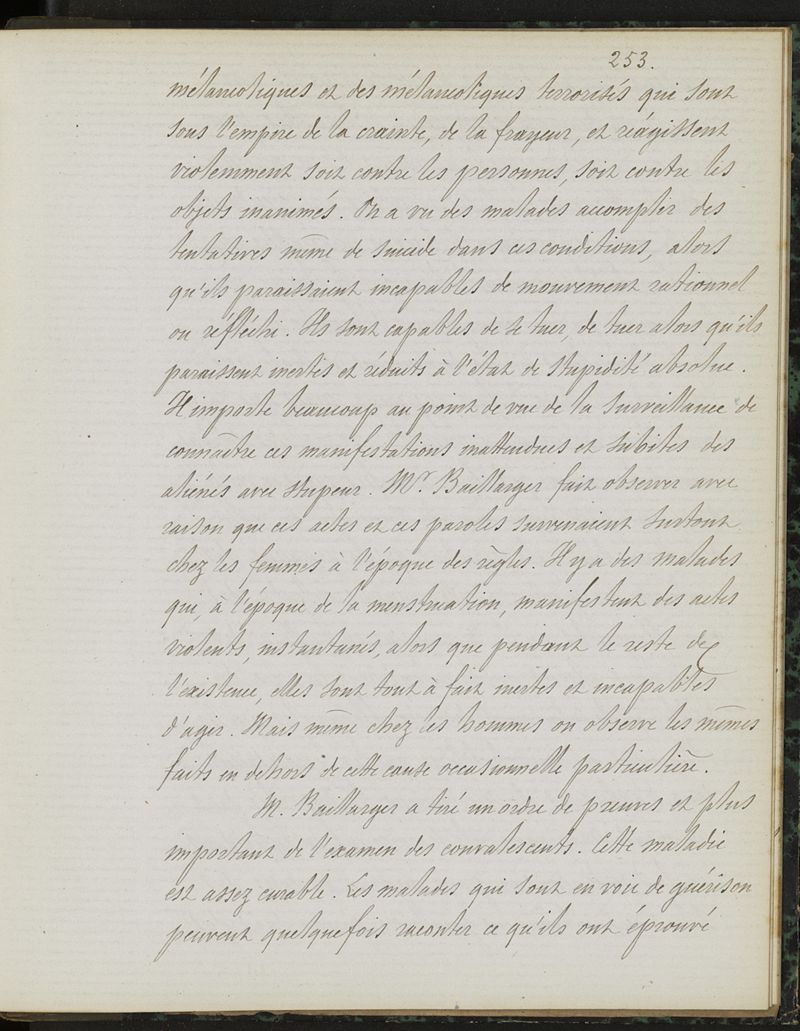 253.
mélancoliques et des mélancoliques terrorisés qui sont
sous l'empire de la crainte, de la frayeur, et réagissent
violemment soit contre les personnes, soit contre les
objets inanimés. On a vu des malades accomplir des
tentatives même de suicide dans ces conditions, alors
qu'ils paraissaient incapables de mouvement rationnel
ou réfléchi. Ils sont capables de se tuer, de tuer alors qu'ils
paraissent inertes et réduits à l'état de stupidité absolue.
Il importe beaucoup au point de vue de la surveillance de
connaître ces manifestations inattendues et subites des
aliénés avec stupeur. Mr. Baillarger fait observer avec
raison que ces actes et ces paroles survenaient surtout
chez les femmes à l'époque des règles. Il y a des malades
qui, à l'époque de la menstruation, manifestent des actes
violents, instantanés, alors que pendant le reste de
l'existence, elles sont tout à fait inertes et incapables
d'agir. Mais même chez les hommes on observe les mêmes
faits en dehors de cette cause occasionnelle particulière.
M. Baillarger a tiré un ordre de preuves et plus
important de l'examen des convalescents. Cette maladie
est assez curable. Les malades qui sont en voie de guérison
peuvent quelquefois raconter ce qu'ils ont éprouvé